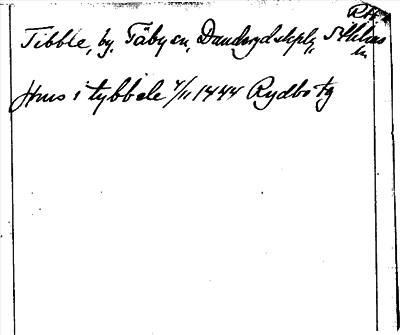 Tibble, by, Täby sn, Danderyds skplg, Sthlms
ln
Jonis i tybbele 4/11 1444 Rydbo tg